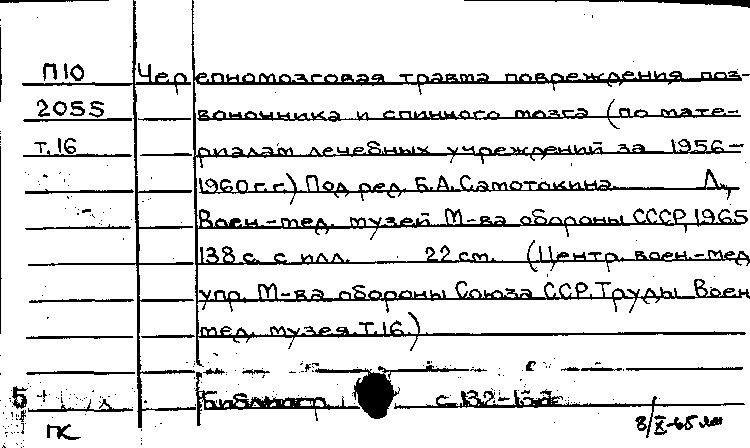 П10 Черепномозговая травма повреждения поз-
2055 воночника и спинного мозга (по мате-
т.16 риалам лечебных учреждений за 1956-
1960 г.г.) Под ред. Б.А. Самотокина. Л.,
Воен.-мед. музей М-ва обороны СССР, 1965
138 с. с илл. 22 см. (Центр. воен.-мед.
упр. М-ва обороны Союза ССР. Труды Воен
мед. музея. Т.16.)
5 Библиогр. с 132-
ПК 8/X-65